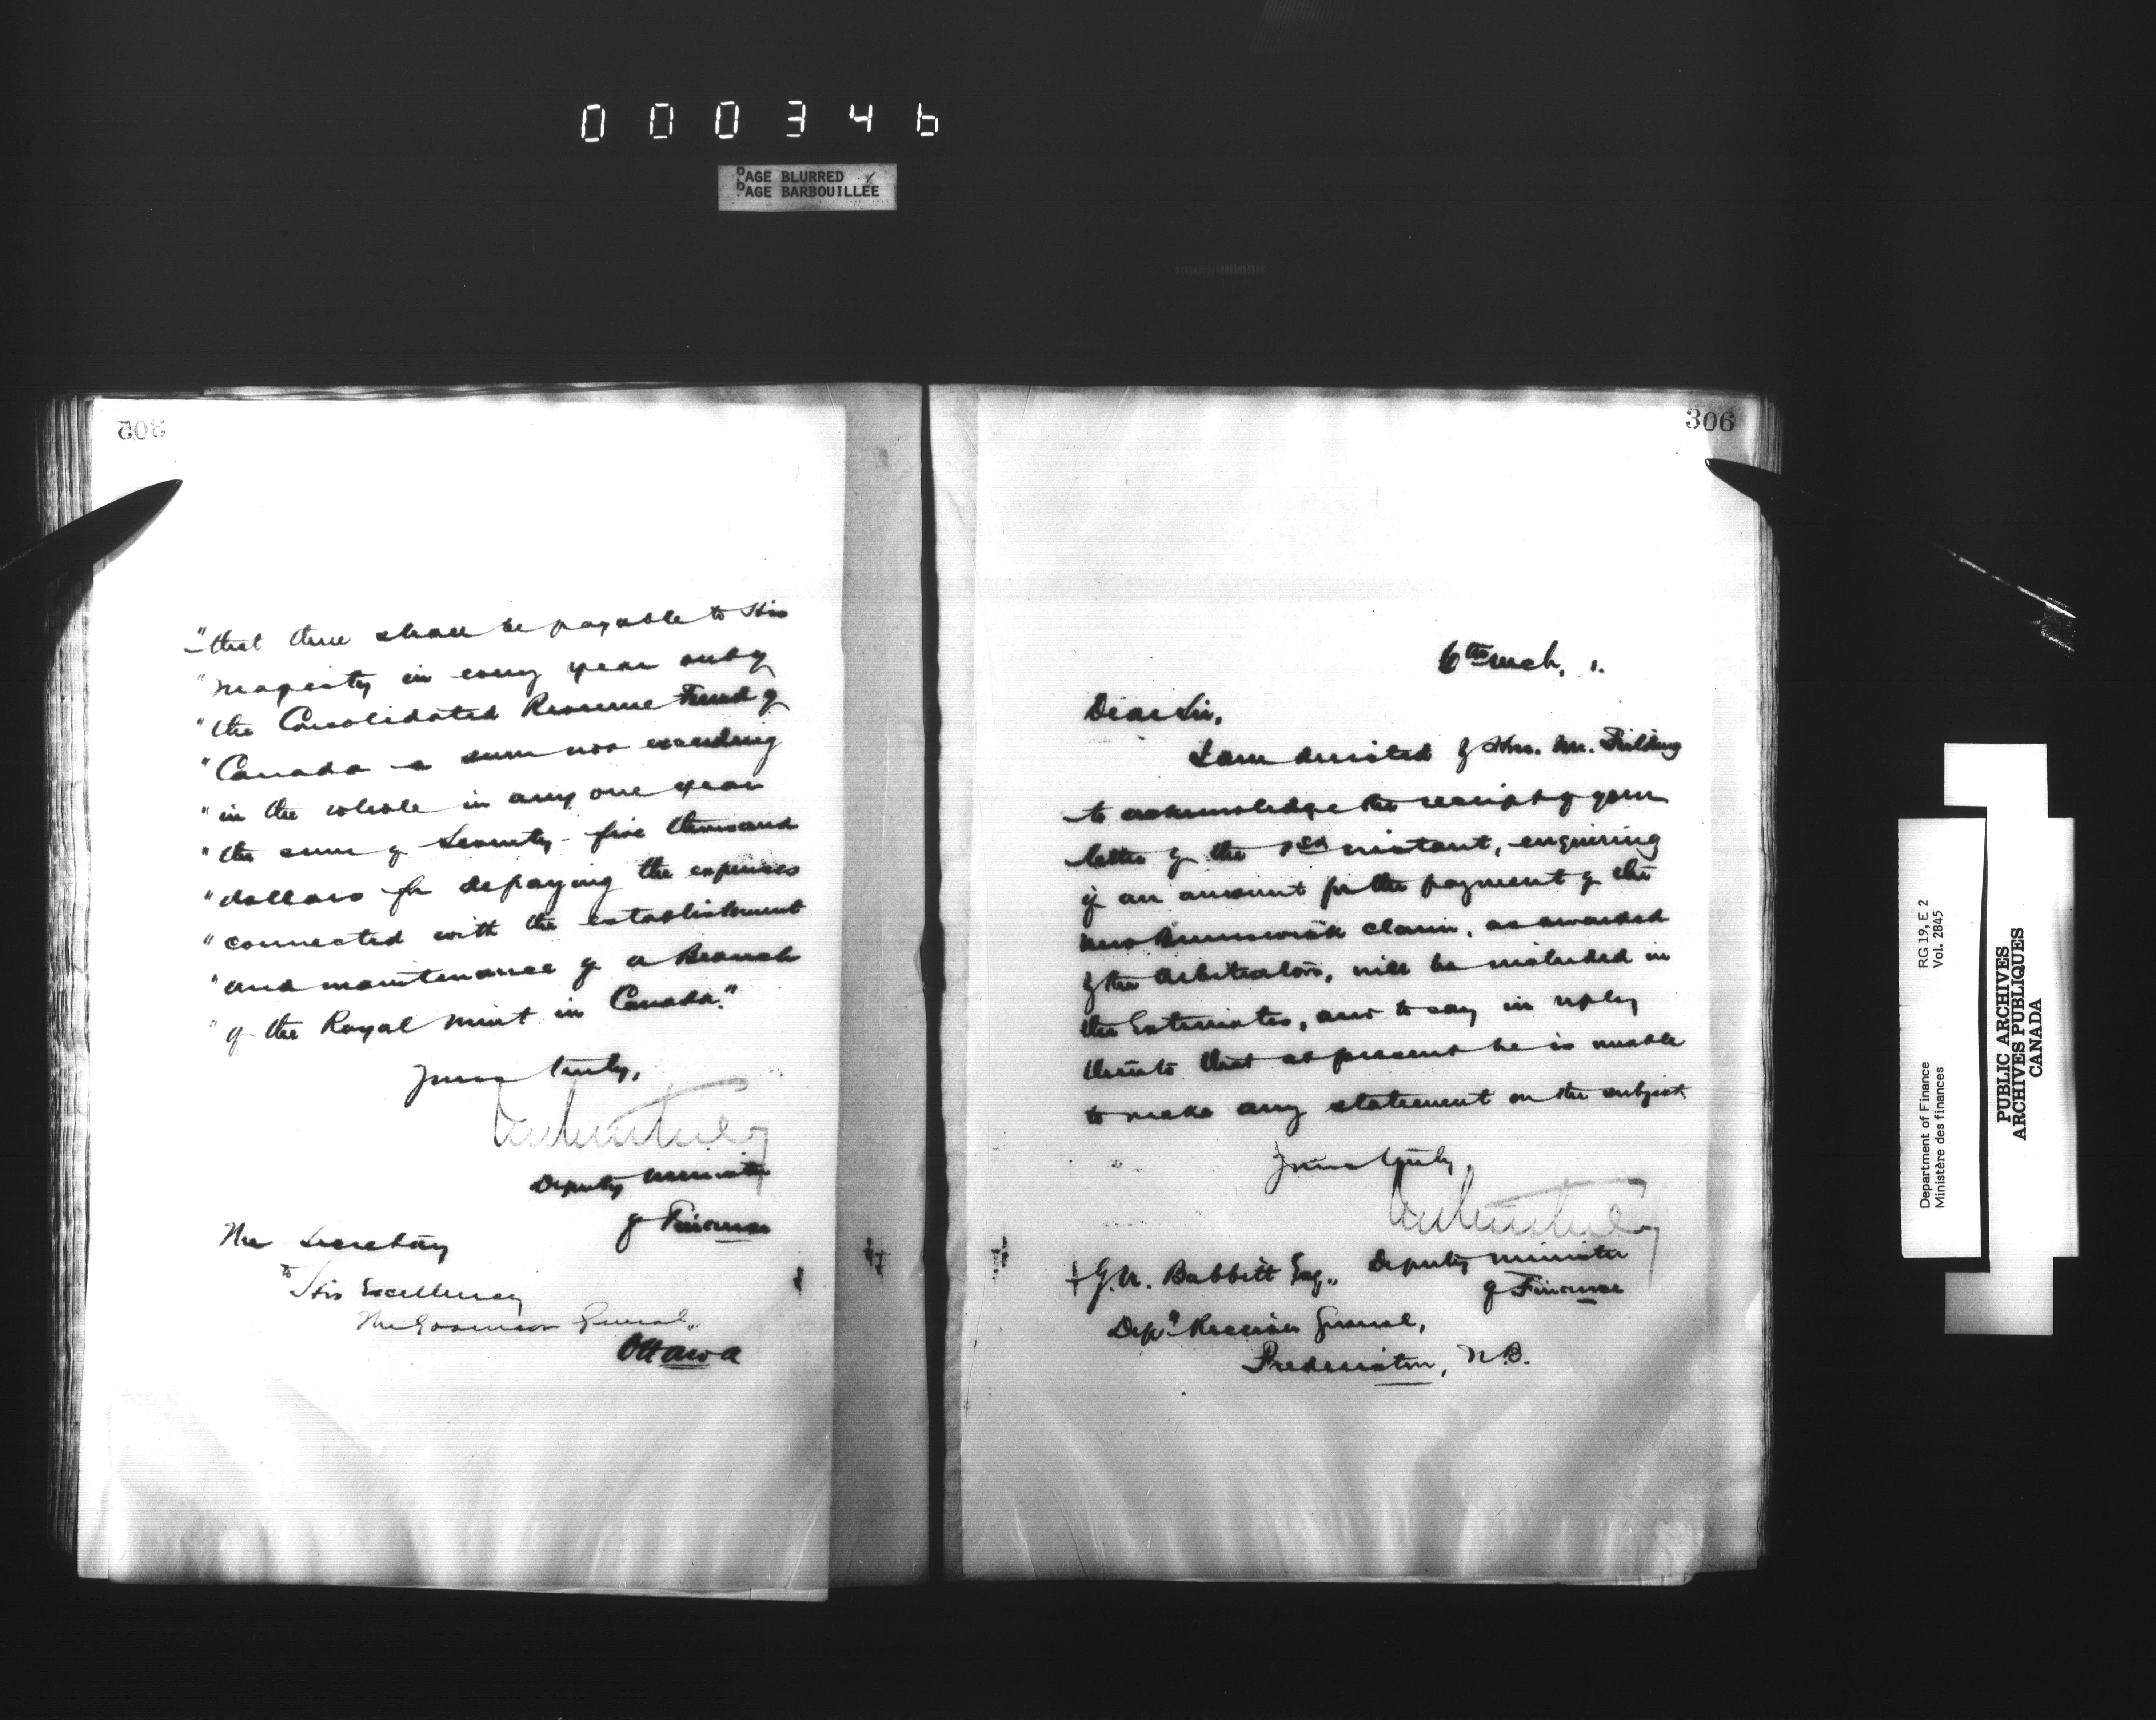 000346
PAGE BLURRED
PAGE BARBOUILLEE
302
"that there shall be payable to His
"Majesty in every year out of
"the Consolidated Revenue Fund of
"Canada a sum not exceeding
"in the whole in any one year
"the sum of Seventy-five thousand
"dollars for defraying the expenses
"connected with the establishment
"and maintenance of a Branch
"of the Royal Mint in Canada."
Yours truly,
Deputy Minister
of Finance
The Secretary
to His Excellency
The Governor General,
Ottawa
306
6th Mch, 1.
Dear Sir,
I am directed by Hon. Mr. Fielding
to acknowledge the receipt of your
letter of the 1st instant, enquiring
if an amount for the payment of the
New Brunswick claim, as awarded
by the Arbitrators, will be included in
the Estimates, and to say in reply
thereto that at present he is unable
to make any statement on the subject
Yours truly,
Deputy Minister
of Finance
G.N. Babbitt Esq.,
Depy Receiver General,
Fredericton, N.B.
RG 19, E 2
Vol. 2845
Department of Finance
Ministère des finances
PUBLIC ARCHIVES
ARCHIVES PUBLIQUES
CANADA